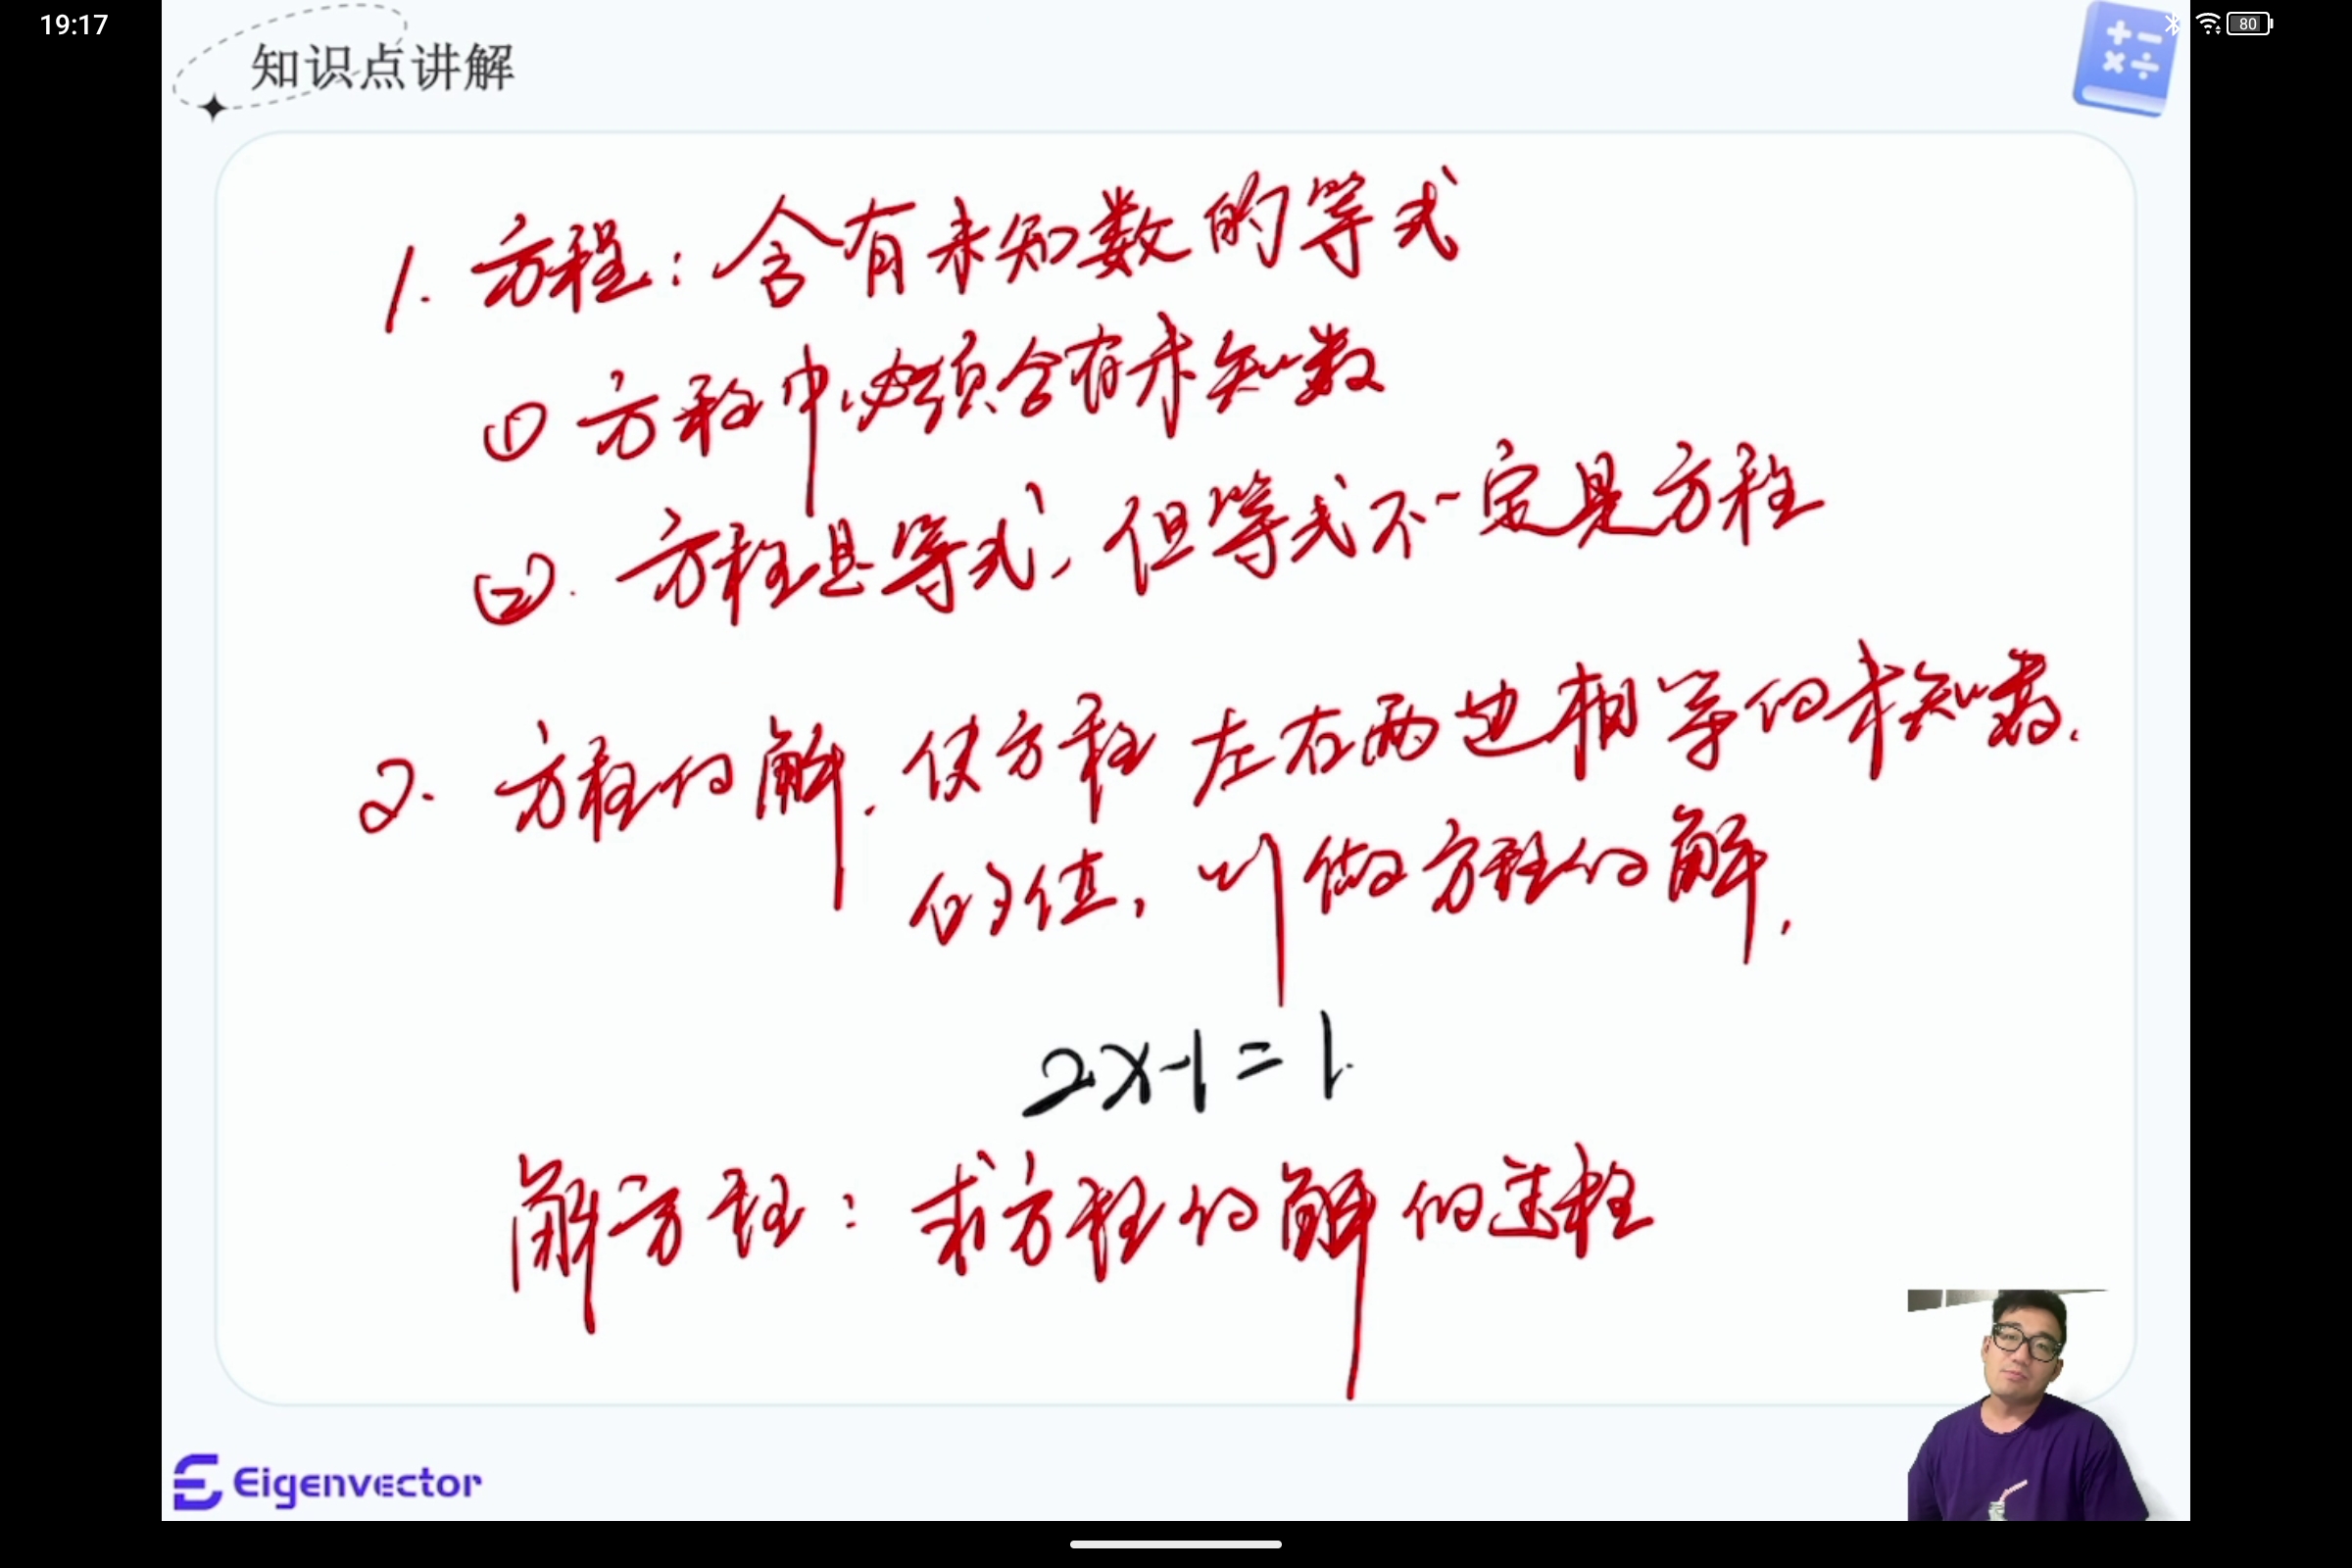 19:17
80
知识点讲解
1. 方程：含有未知数的等式
① 方程中必须含有未知数
②. 方程是等式，但等式不一定是方程
2. 方程的解. 使方程左右两边相等的未知数.
的值，叫做方程的解.
2x-1=1.
解方程：求方程的解的过程
Eigenvector